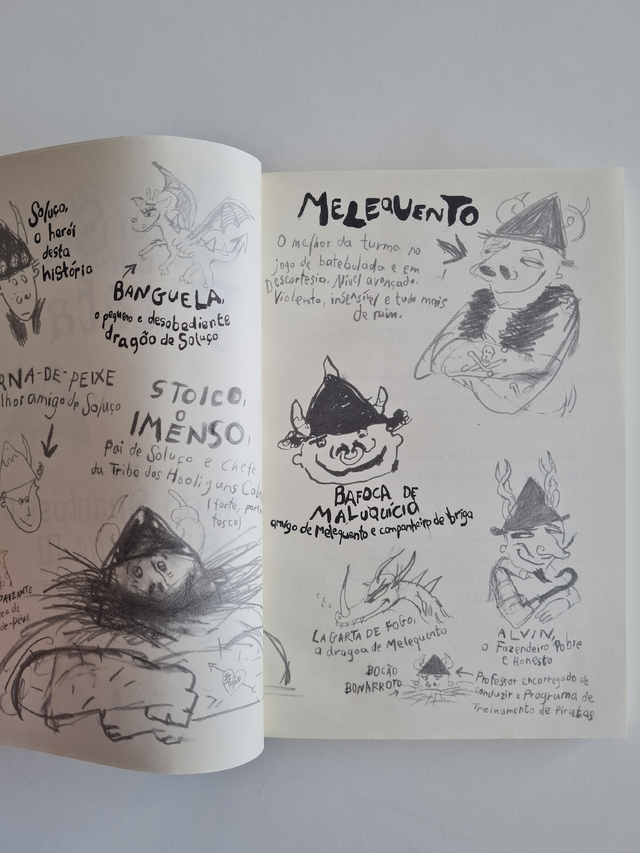 Soluço,
o herói
desta
história
BANGUELA,
o pequeno e desobediente
dragão de Soluço
RNA-DE-PEIXE
lhor amigo de Soluço
STOICO,
O
IMENSO,
Pai de Soluço e Chefe
da Tribo dos Hooligans Cabe
(forte, por
tosco)
MELEQUENTO
O melhor da turma no
jogo de batebulada e em
Descortesia. Nível avançado.
Violento, insensível e tudo mais
de ruim.
BAFOCA DE
MALUQUÍCIA
amigo de Melequento e companheiro de briga
LAGARTA DE FOGO,
a dragoa de Melequento
ALVIN,
o Fazendeiro Pobre
e Honesto
BOCÃO
BONARROTO
Professor encarregado de
conduzir o Programa de
Treinamento de Piratas